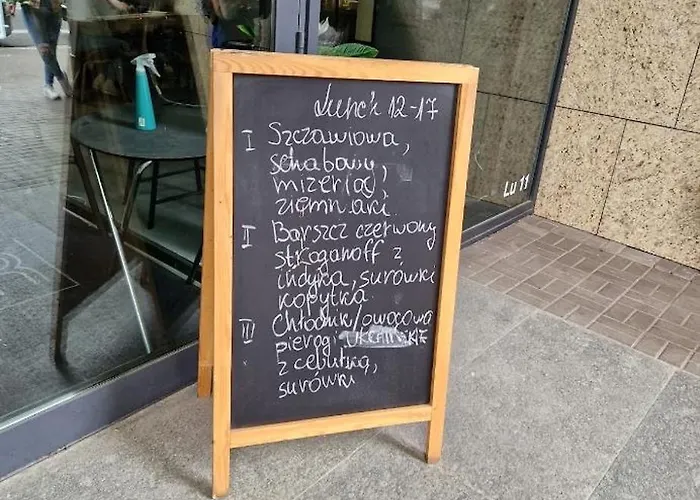 Lunch 12-17
I Szczawiowa,
schabowy,
mizeria,
ziemniaki.
I Barszcz czerwony
stroganoff z
indyka, surówki
kopytka.
III Chłodnik/owocowa
pierogi
z cebulką,
surówki
Lu 11